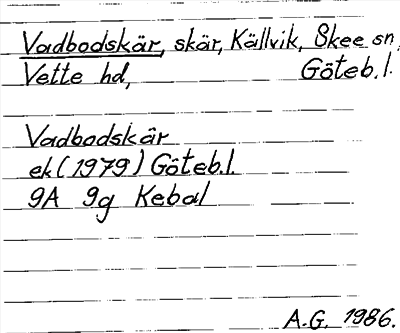 Vadbodskär, skär, Källvik, Skee sn,
Vette hd, Göteb.l.
Vadbodskär
ek (1979) Göteb.l.
9A 9g Kebal
A.G. 1986.